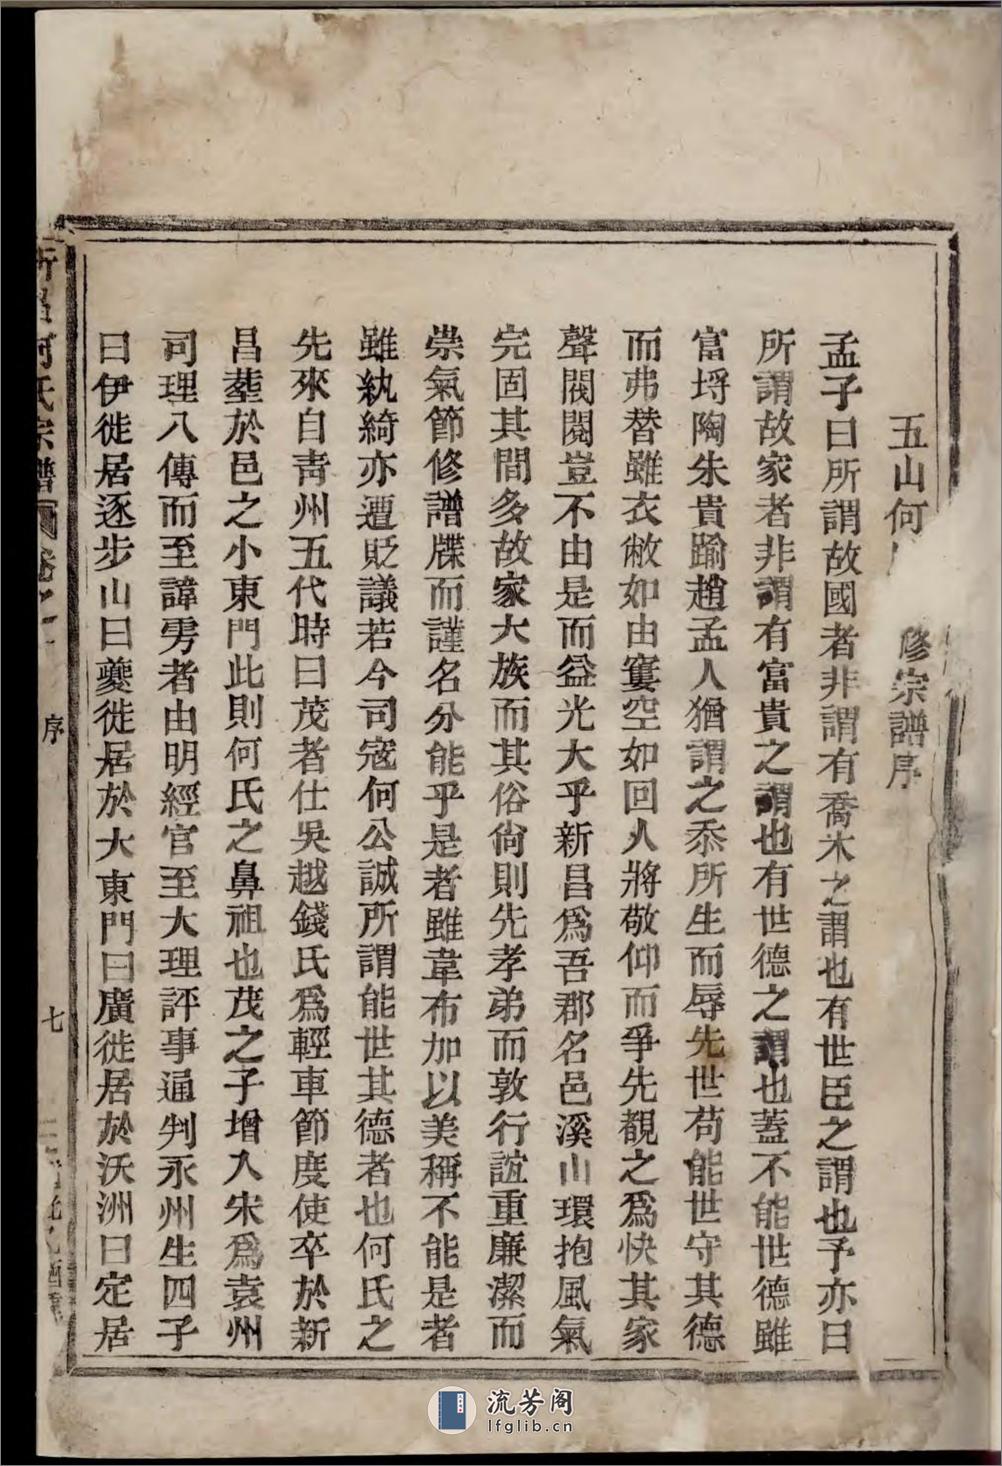 五山何 修宗譜序
孟子曰所謂故國者非謂有喬木之謂也有世臣之謂也予亦曰
所謂故家者非謂有富貴之謂也有世德之謂也蓋不能世德雖
富埒陶朱貴踰趙孟人猶謂之忝所生而辱先世苟能世守其德
而弗替雖衣敝如由簍空如回人將敬仰而爭先覩之為快其家
聲閥閱豈不由是而益光大乎新昌為吾郡名邑溪山環抱風氣
完固其間多故家大族而其俗尙則先孝弟而敦行誼重廉潔而
崇氣節修譜牒而謹名分能乎是者雖韋布加以美稱不能是者
雖紈綺亦遭貶議若今司寇何公誠所謂能世其德者也何氏之
先來自青州五代時曰茂者仕吳越錢氏為輕車節度使卒於新
昌塟於邑之小東門此則何氏之鼻祖也茂之子增入宋為袁州
司理八傳而至諱雱者由明經官至大理評事通判永州生四子
曰伊徙居逐步山曰夔徙居於大東門曰廣徙居於沃洲曰定居
新昌何氏宗譜 卷之一 序 七
流芳阁
lfglib.cn